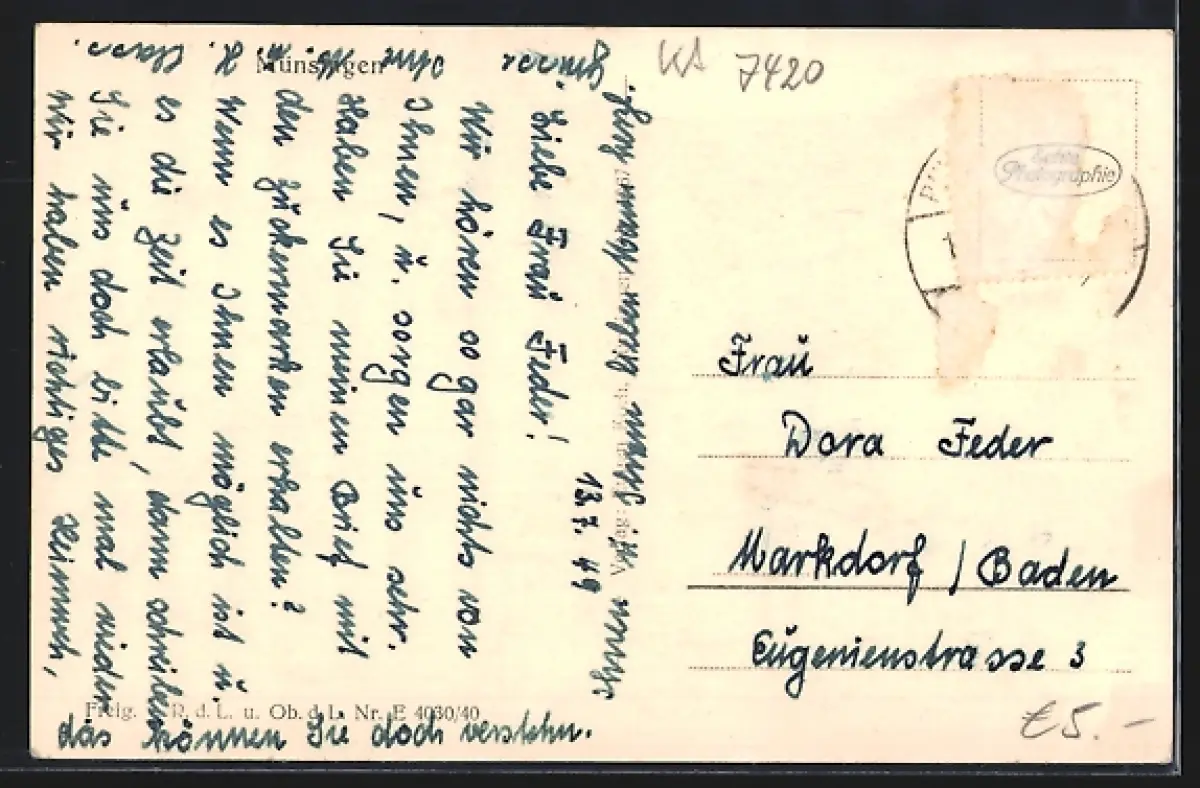 13.7.49
Liebe Frau Feder!
Wir hören so gar nichts von
Ihnen, u. sorgen uns sehr.
Haben Sie meinen Brief mit
den Zuckermarken erhalten?
Wenn es Ihnen möglich ist u.
es die Zeit erlaubt, dann schreiben
Sie uns doch bitte mal wieder
Wir haben richtiges Heimweh,
das können Sie doch verstehn.
Ihren lieben Mann
Münsingen
Freig. d. R. d. L. u. Ob. d. L. Nr. E 4030/40
7420
Echte
Photographie
Frau
Dora Feder
Markdorf / Baden
Eugenienstrasse 3
€5.-